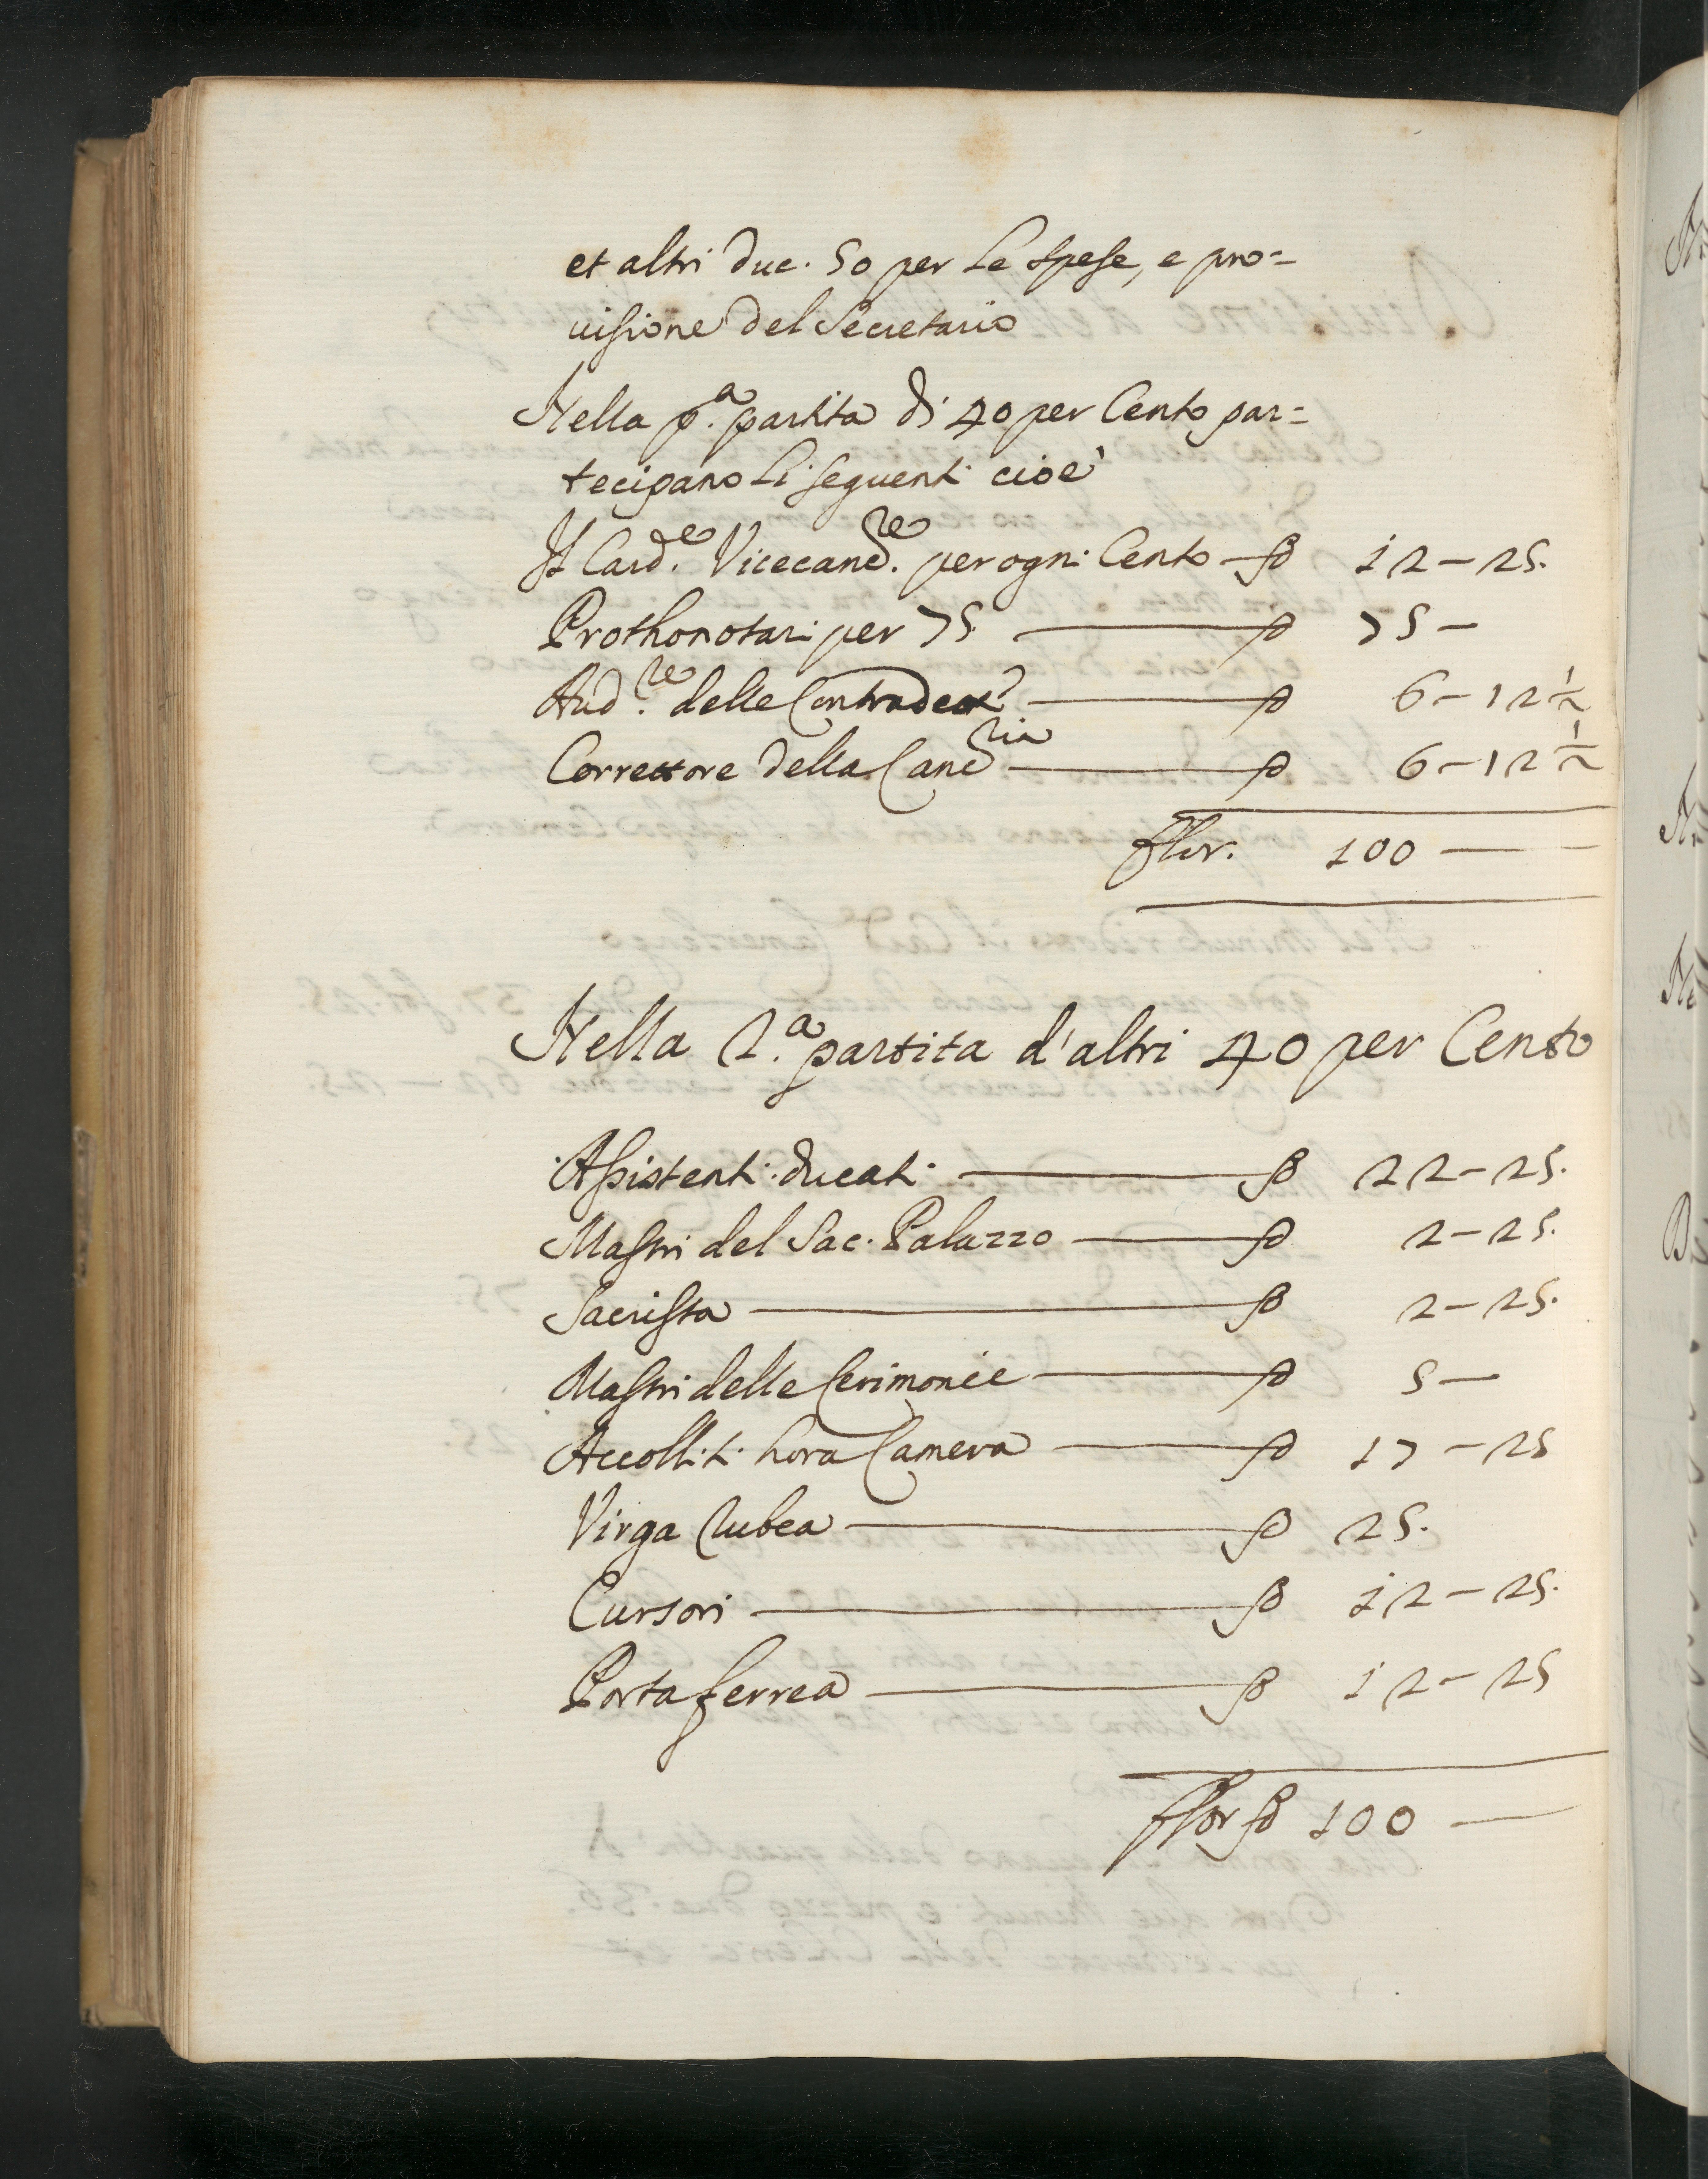 et altri duc. 50 per le spese, e pro=
uisione del Secretario
Nella p.ª partita di 40 per Cento par=
tecipano li seguenti cioè
Il Card.e Vicecanc.re per ogni Cento — fl 12 – 25.
Prothonotari per 75. — fl 75 –
Aud.re delle Contradette — fl 6 – 12 ½
Correttore della Canc.ria — fl 6 – 12 ½
flor. 100 —
Nella 2.ª partita d'altri 40 per Cento
Assistenti ducati — fl 22 – 25.
Mastri del Sac. Palazzo — fl 2 – 25.
Sacrista — fl 2 – 25.
Mastri delle Cerimonie — fl 5 –
Accolliti hora Camera — fl 17 – 25
Virga Rubea — fl 25.
Cursori — fl 12 – 25.
Porta ferrea — fl 12 – 25
flor fl 100 —